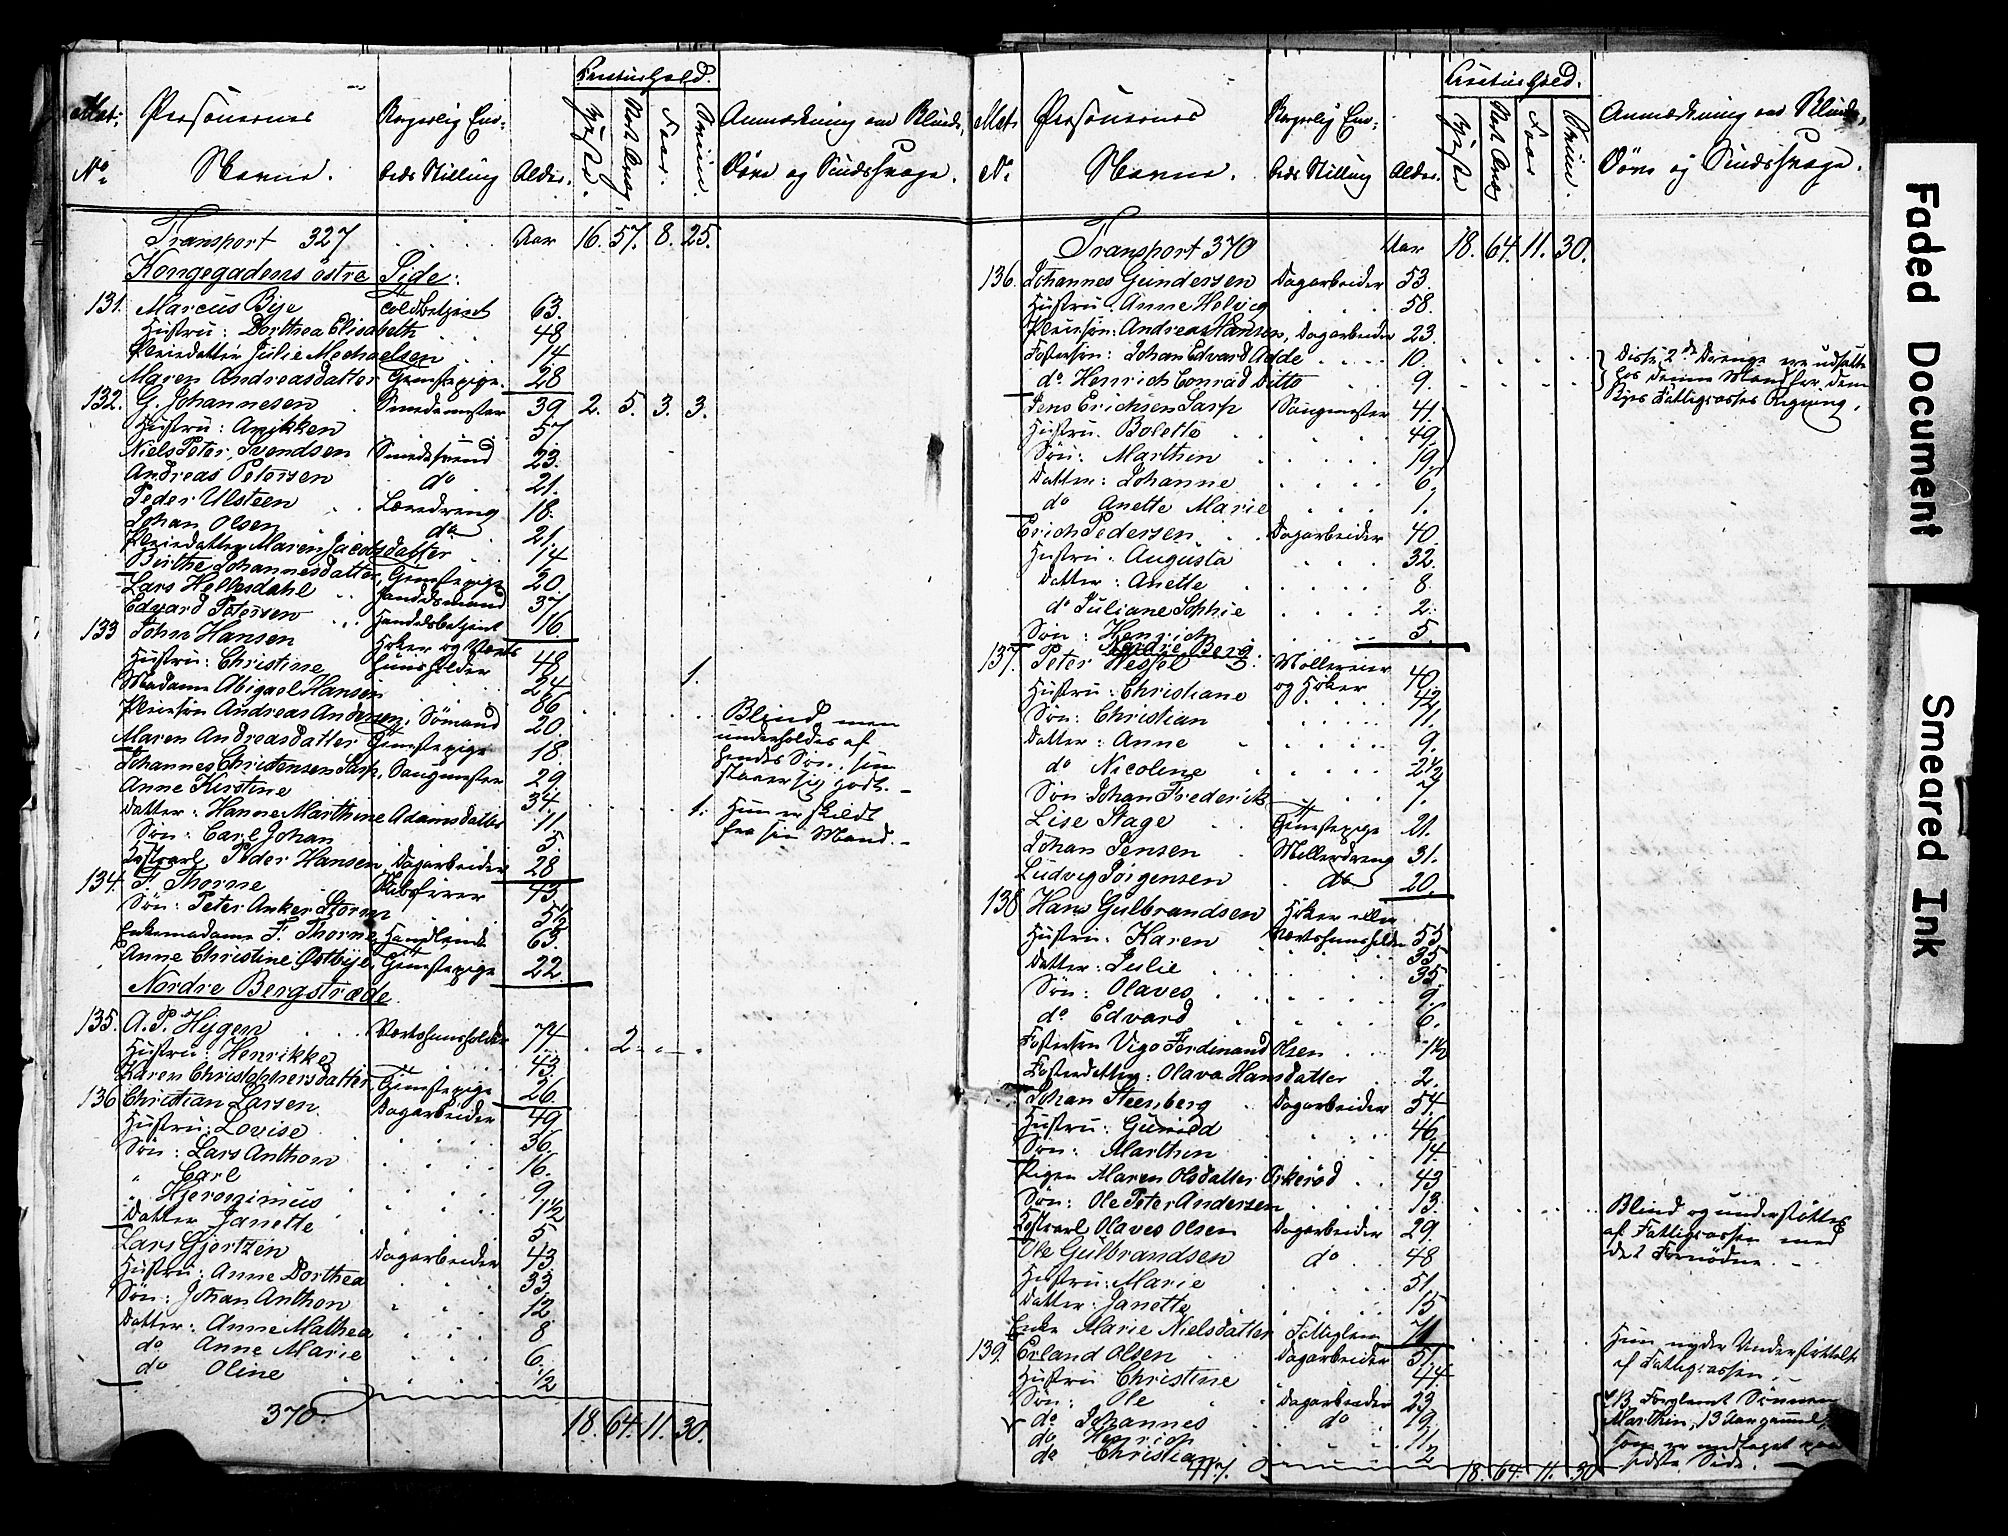 Mat: Personernes Borgerlig Em- Creaturhold. Anmærkning om Blinde,
No. Navne. beds Stilling Alder. Heste. Stort Qvæg Faar. Sviin. Døve og Sindssvage.
Transport 327 Aar 16. 57. 8. 25.
Kongegadens østre Side:
131. Marcus Bye Toldbetjent 63.
Hustru: Dorthea Elisabeth 48
Pleiedatter Julie Mechaelsen 14
Maren Andreasdatter Tjenestepige. 28
132. G. Johannesen Smedemester 39. 2. 5. 3. 3.
Hustru: Anikken 57
Niels Peter Svendsen Smedesvend 23.
Andreas Petersen do 21.
Peder Ulsteen Læredreng 18.
Johan Olsen do 21.
Pleiedatter Maren Jacobsdatter 14
Birthe Johannesdatter, Tjenestepige 20.
Lars Helkesdahl Handelsmand 37
Edvard Petersen Handelsbetjent 16.
133 John Hansen Høker og Værts
Hustru: Christine huusholder 48 1.
24
Madame Abigael Hansen 86 Blind, men
Pleiesøn Andreas Andersen, Sømand 20. underholdes af
Maren Andreasdatter Tjenestepige 18. hendes Søn, hun
Johannes Christensen Sarp, Saugmester 29. staaer sig godt. -
Anne Kirstine 34. 1. Hun er skildt
Datter: Hanne Marthine Adamsdatter 11. fra sin Mand. -
Søn: Carl Johan 5.
Kostkarl Peder Hansen Dagarbeider 28
134. F. Thorne Skibsfører 43
Søn: Peter Anker Storm 5½
Enkemadame F. Thorne Handlende 63.
Anne Christine Østbye, Tjenestepige 22.
Nordre Bergstræde.
135. A. P. Hygen Værtshuusholder 74 2
Hustru: Henrikke 43.
Karen Christophersdatter, Tjenestepige 26.
136 Christian Larsen Dagarbeider 49
Hustru: Lovise 36.
Søn: Lars Anthon 16.
" Carl 9.
" Hjeronimus 1½
Datter Janette 5
Lars Gjertzen Dagarbeider 43.
Hustru: Anne Dorthea 33
Søn: Johan Anthon 12
Datter: Anne Mathea 8
do Anne Marie 6.
do Oline ½
370. 18. 64. 11. 30.
Mat: Personernes Borgerlig Em- Creaturhold. Anmærkning om Blinde,
No. Navne. beds Stilling Alder. Heste Stort Qvæg Faar Sviin. Døve og Sindssvage.
Transport 370 Aar 18. 64. 11. 30.
136. Johannes Gundersen Dagarbeider 53.
Hustru. Anne Helvig 58.
Pleiesøn: Andreas Hansen, Dagarbeider 23.
Fostersøn: Johan Edvard Aade 10. Disse 2de Drenge ere udsatte
do Henrich Conrad Ditto 9. hos denne Mand for dem
Jens Erichsen Sarp Saugmester 41 Byes Fattigcasses Regning.
Hustru. Bolette 49.
Søn: Marthin 19.
Datter: Johanne 6.
do Anette Marie 1.
Erich Pedersen Dagarbeider 40.
Hustru: Augusta 32.
Datter: Anette 8
do Juliane Sophie 2.
Søn: Henrich 5.
Nordre Berg
137. Peter Hessel Møllereier 40.
Hustru: Christiane og Høker 42.
Søn: Christian 11.
Datter: Anne 9.
do Nicoline 2½
Søn: Johan Frederik 7.
Lise Stage Tjenestepige 21.
Johan Jensen Møllerdreng 31.
Ludvig Jørgensen do 20.
138 Hans Gulbrandsen Høker eller
Hustru: Karen Værtshuusholder 55
35.
Datter: Julie 35.
Søn: Olaves 9.
do Edvard 6.
Fostersøn Vigo Ferdinand Olsen 1½
Fosterdatter: Olava Hansdatter 2.
Johan Steenberg Dagarbeider 54.
Hustru: Gunild 46.
Søn: Marthin 14.
Pigen Maren Olsdatter Orkerød 43
Søn: Ole Peter Andersen 13. Blind og understøttes
Kostkarl Olaves Olsen Dagarbeider 29. af Fattigcassen med
Ole Gulbrandsen do 48 det Fornødne. -
Hustru: Marie 51.
Datter: Janette 15
Enke Marie Nielsdatter Fattiglem 71 Hun nyder Understøttelse
139. Erland Olsen Dagarbeider 51. af Fattigcassen.
Hustru Christine 44.
Søn: Ole Dagarbeider 23 NB. Forglemt Sønnen
do Johannes do 19. Marthin, 13 Aar gammel,
do Henrich 11. som er andtaget paa
do Christian 2 sidste Side.
417. 18. 64. 11. 30
Faded Document
Smeared Ink